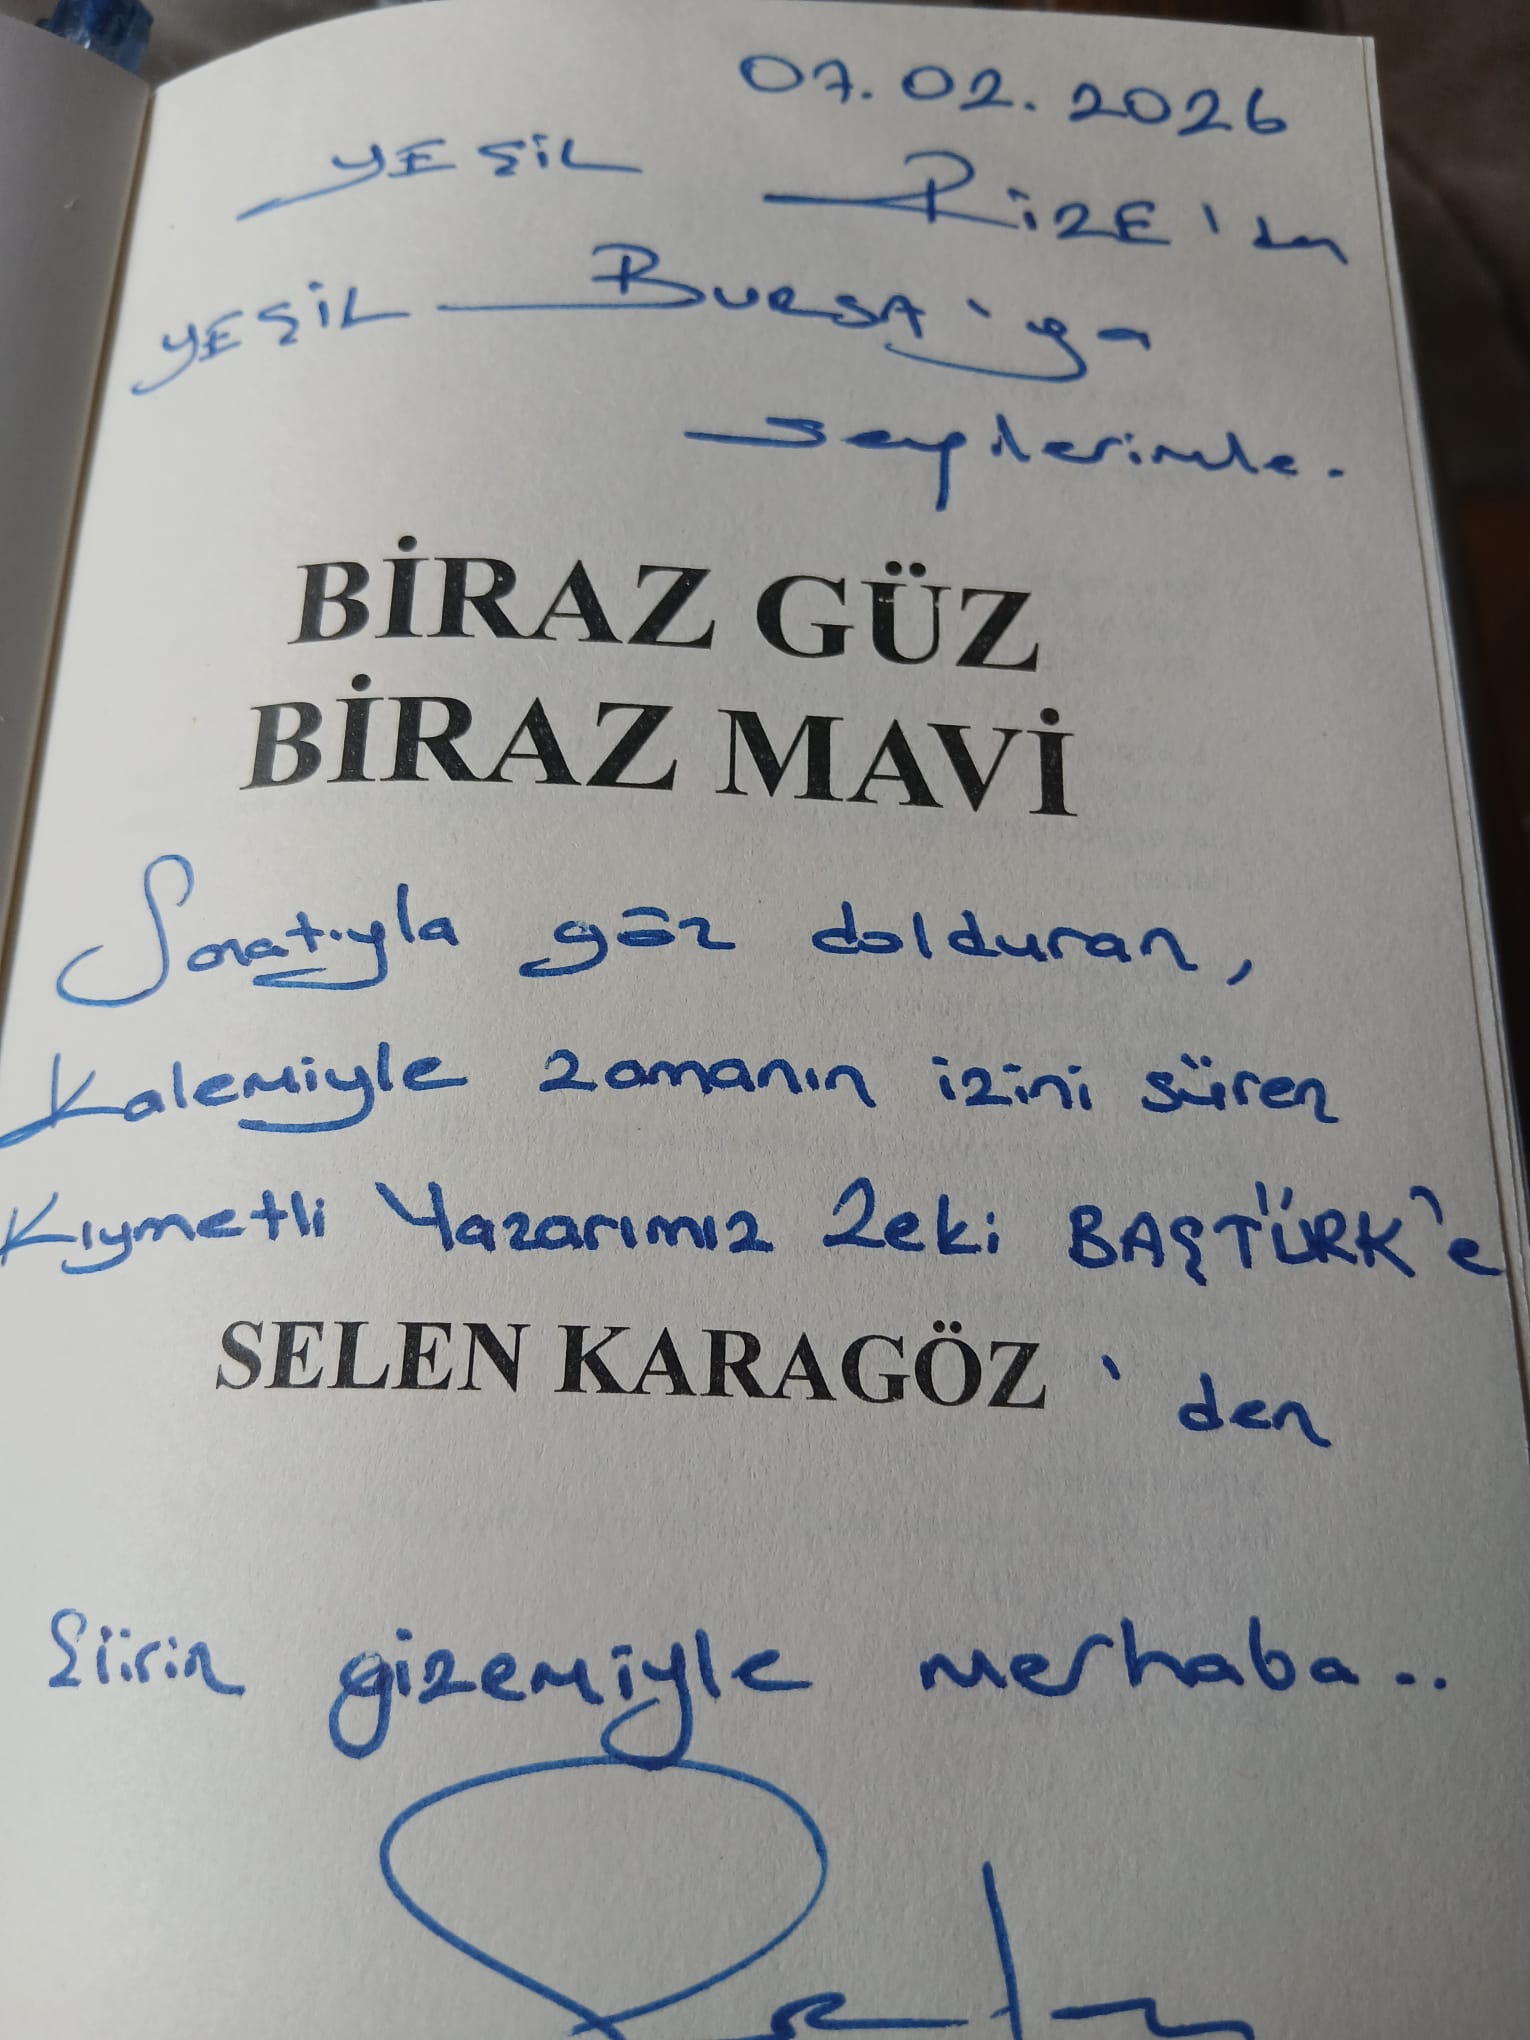 07.02.2026
YEŞİL RİZE'den
YEŞİL BURSA'ya
sevgilerimle.
BİRAZ GÜZ
BİRAZ MAVİ
Sanatıyla göz dolduran,
Kalemiyle zamanın izini süren
Kıymetli Yazarımız Zeki BAŞTÜRK'e
SELEN KARAGÖZ 'den
Şiirin gizemiyle merhaba..